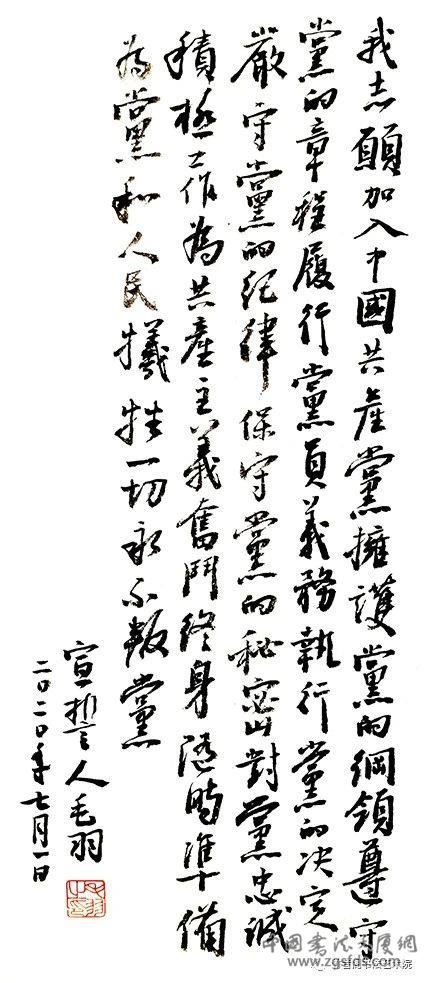 我志願加入中國共產黨擁護黨的綱領遵守
黨的章程履行黨員義務執行黨的决定
嚴守黨的紀律保守黨的秘密對黨忠誠
積極工作為共產主義奮鬥終身隨時準備
為黨和人民犧牲一切永不叛黨
宣誓人毛羽
二〇二〇年七月一日
中国书法大厦网
www.zgsfds.com